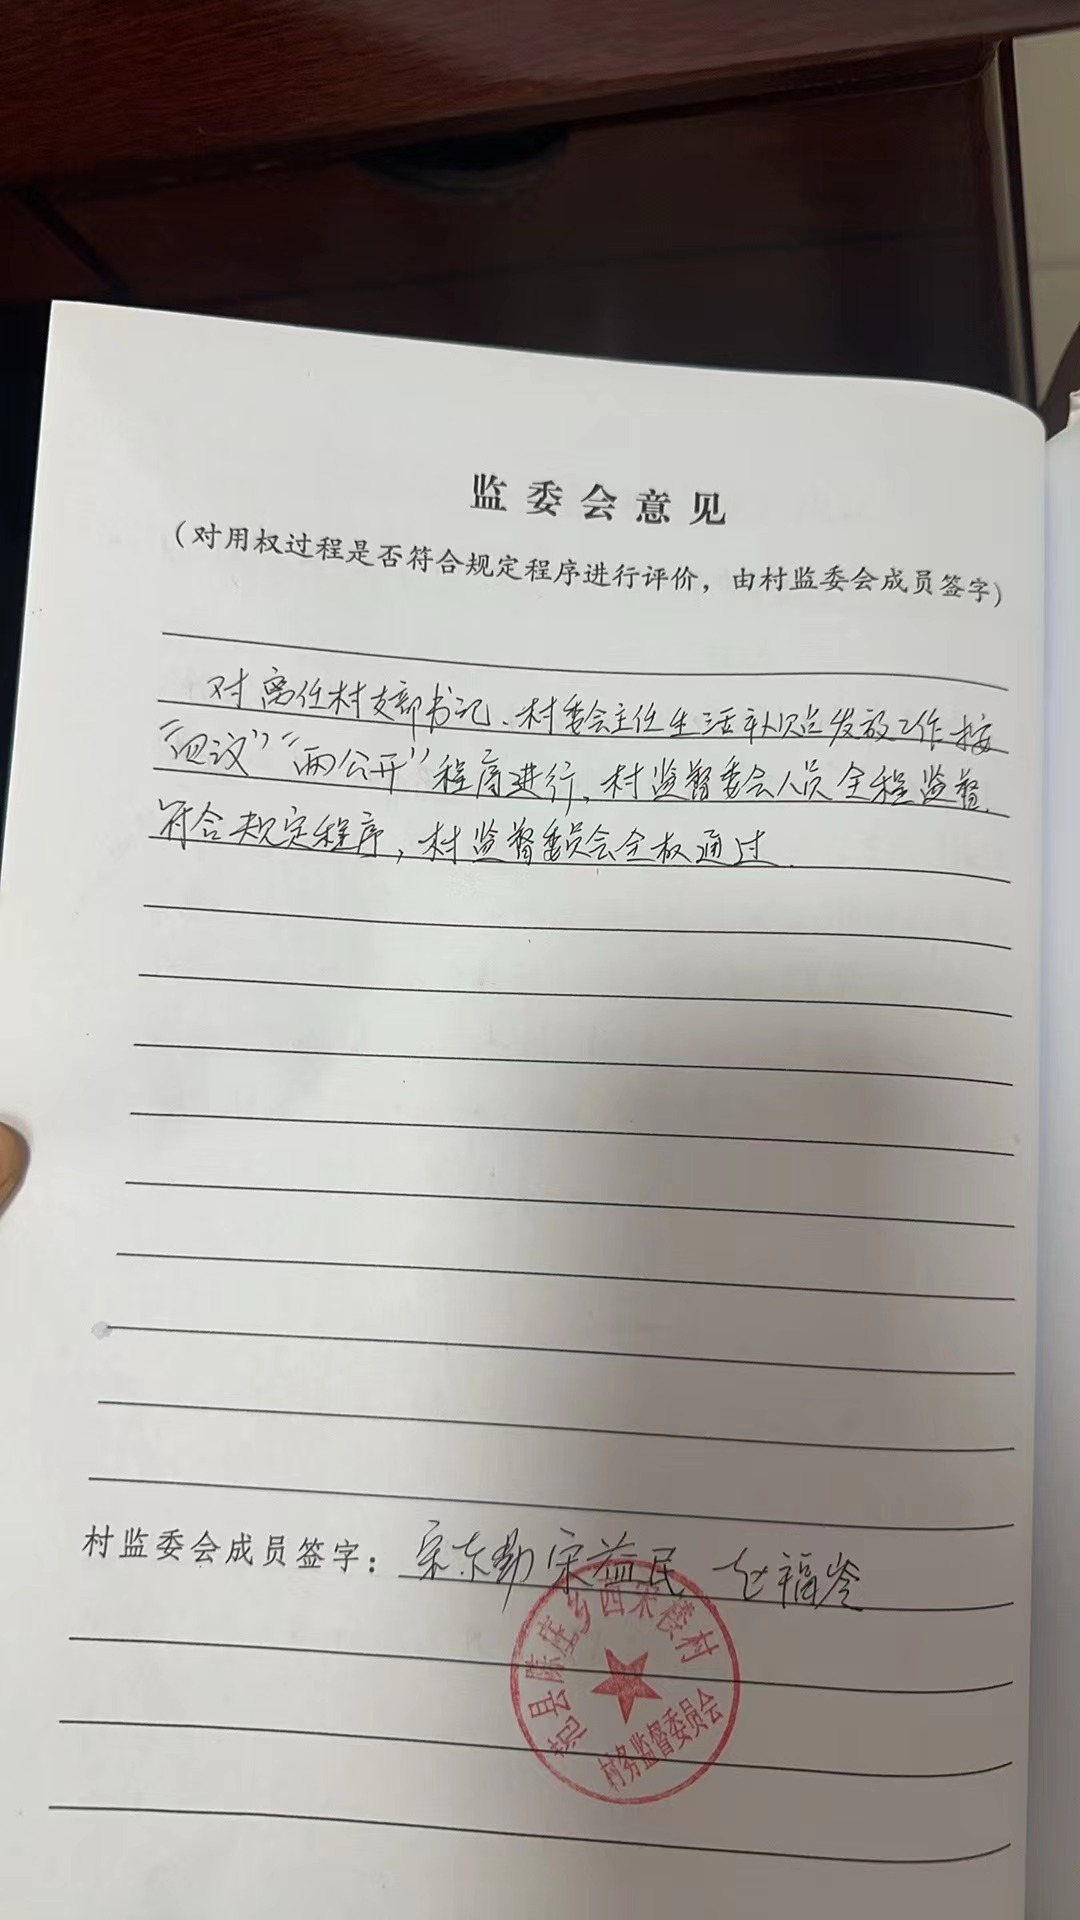 监委会意见
（对用权过程是否符合规定程序进行评价，由村监委会成员签字）
对离任村支部书记、村委会主任生活补贴发放工作按
“四议”“两公开”程序进行，村监督委会人员全程监督，
符合规定程序，村监督委员会全权通过.
村监委会成员签字：宋东勤 宋益民 赵福岑
范县陈庄乡西宋楼村
村务监督委员会